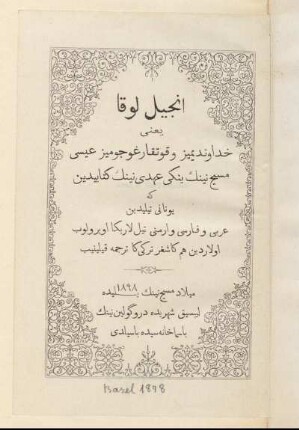 انجیل لوقا
یعنی
خداوندیمیز و قوتقارغوجومیز عیسی
مسیح نینك ینکی عهدی نینك کتابیدین
که
یونانی تیلیدین
عربی و فارسی و ارمنی تیل لاریکا اویرولوب
اولاردین هم کاشغر ترکی کا ترجمه قیلینیب
میلاد مسیح نینك ۱۸۹۸ ییلیده
لیپسیق شهریده دروگولین نینك
باسماخانه سیده باسیلدی
Basel 1898